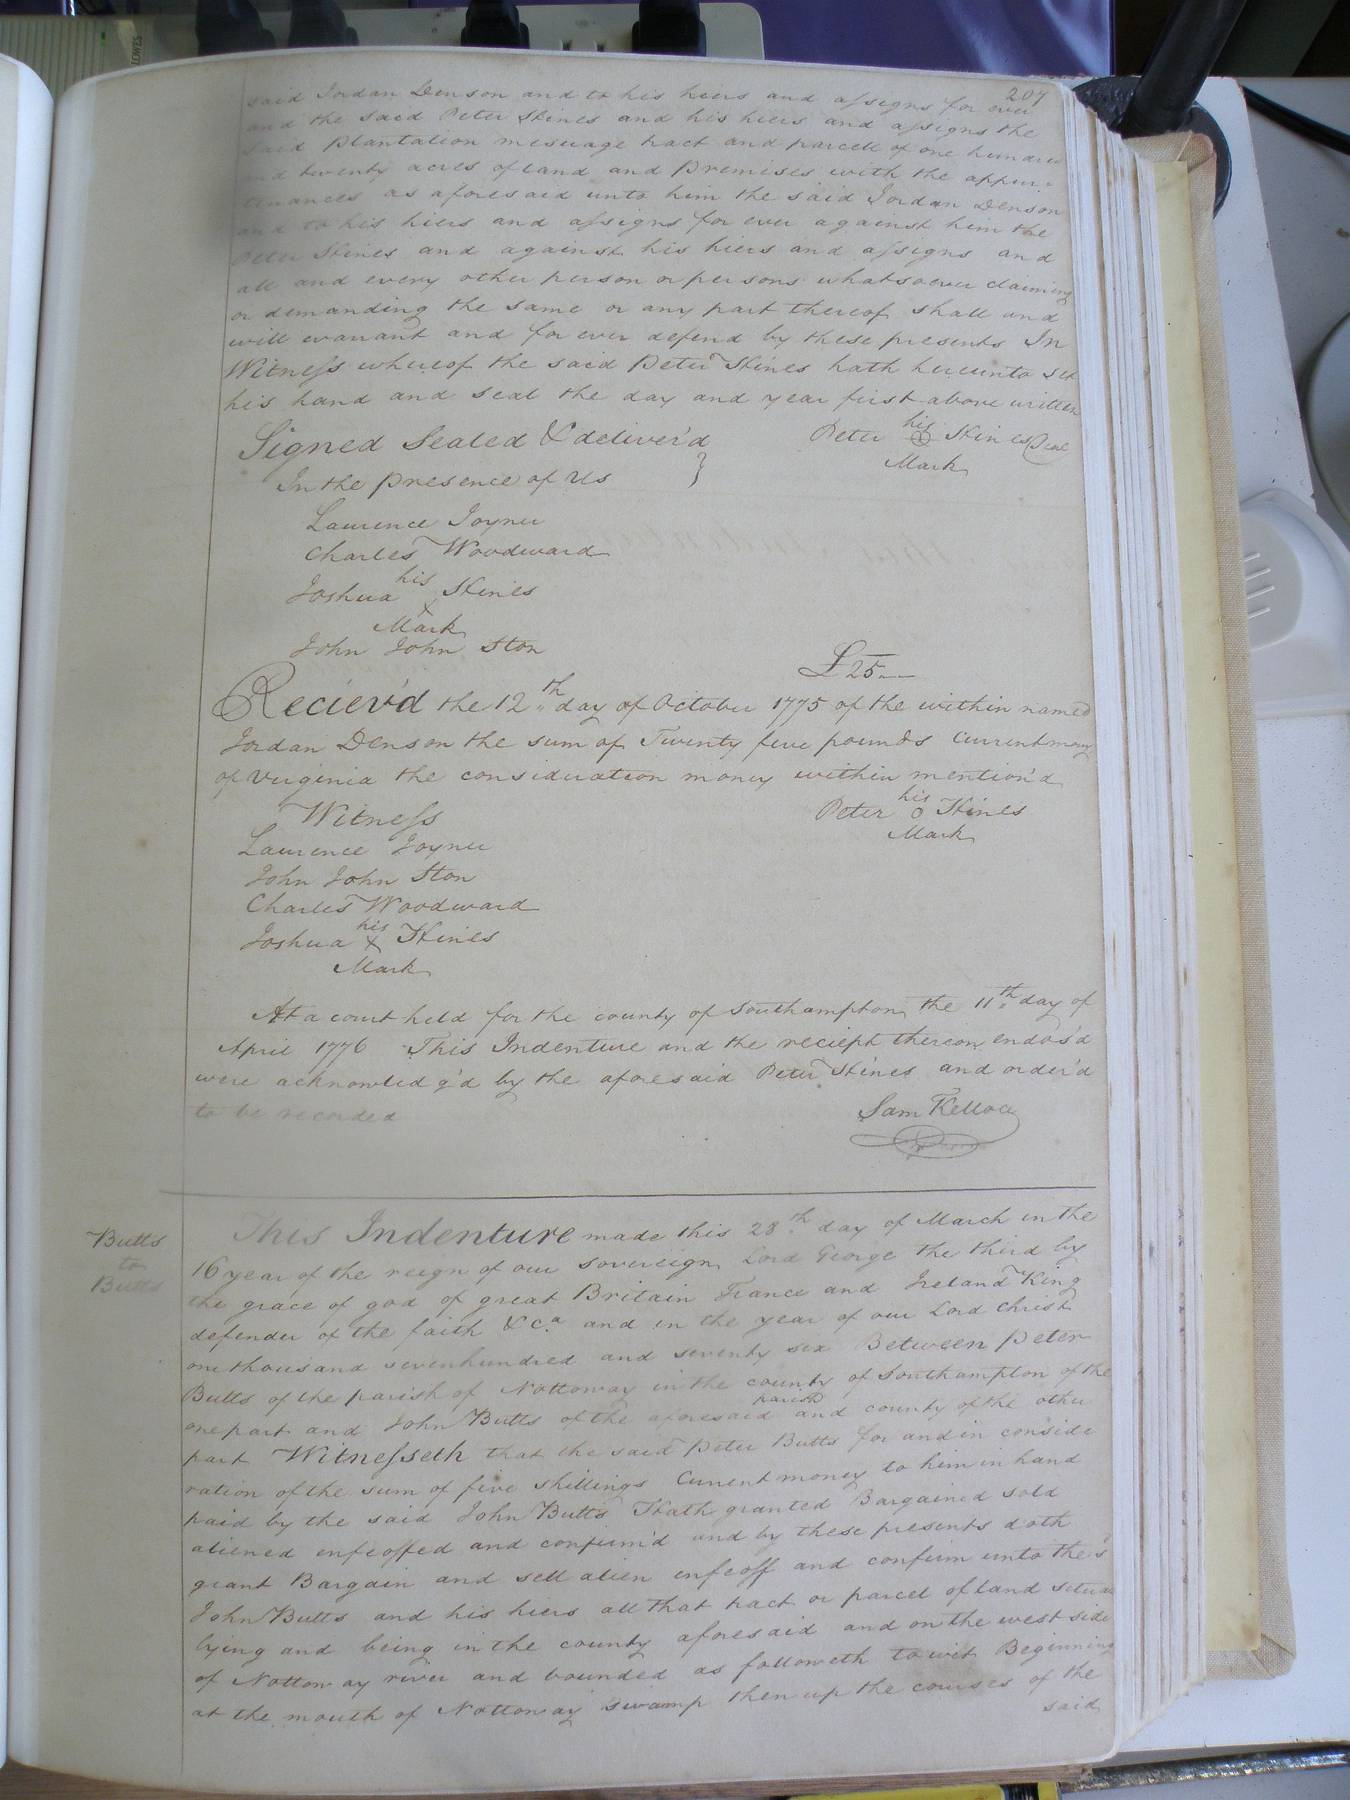 207
said Jordan Denson and to his hiers and assigns for ever
and the said Peter Hines and his hiers and assigns the
said Plantation mesuage tract and parcell of one hundred
and twenty acres of land and Premises with the appur=
tenances as aforesaid unto him the said Jordan Denson
and to his hiers and assigns for ever against him the
Peter Hines and against his hiers and assigns and
all and every other person or persons whatsoever claiming
or demanding the same or any part thereof shall and
will warrant and for ever defend by these presents In
Witness whereof the said Peter Hines hath hereunto set
his hand and seal the day and year first above written
Signed Sealed & deliver'd
Peter his Hines Seal
Mark
In the presence of us
Laurence Joyner
Charles Woodward
Joshua his Hines
x
Mark
John John Ston
£25
Reciev'd the 12th day of October 1775 of the within named
Jordan Denson the sum of Twenty five pounds Current mony
of Virginia the consideration money within mention'd
Witness
Peter his o Hines
Mark
Laurence Joyner
John John Ston
Charles Woodward
Joshua his x Hines
Mark
At a court held for the county of Southampton the 11th day of
April 1776 This Indenture and the reciept thereon endos'd
were acknowledg'd by the aforesaid Peter Hines and order'd
to be recorded
Sam Kello
Butts
to
Butts
This Indenture made this 28th day of March in the
16 year of the reign of our sovereign Lord George the third by
the grace of god of great Britain France and Ireland King
defender of the faith &c.a and in the year of our Lord Christ
one thousand sevenhundred and seventy six Between Peter
Butts of the parish of Nottoway in the county of Southampton of the
one part and John Butts of the aforesaid parish and county of the other
part Witnesseth that the said Peter Butts for and in conside
ration of the sum of five shillings Current money to him in hand
paid by the said John Butts Hath granted Bargained sold
aliened enfeoffed and confirm'd and by these presents doth
grant Bargain and sell alien enfeoff and confirm unto the s'd
John Butts and his hiers all that tract or parcel of land situate
lying and being in the county aforesaid and on the west side
of Nottoway river and bounded as followeth to wit Beginning
at the mouth of Nottoway swamp then up the courses of the
said